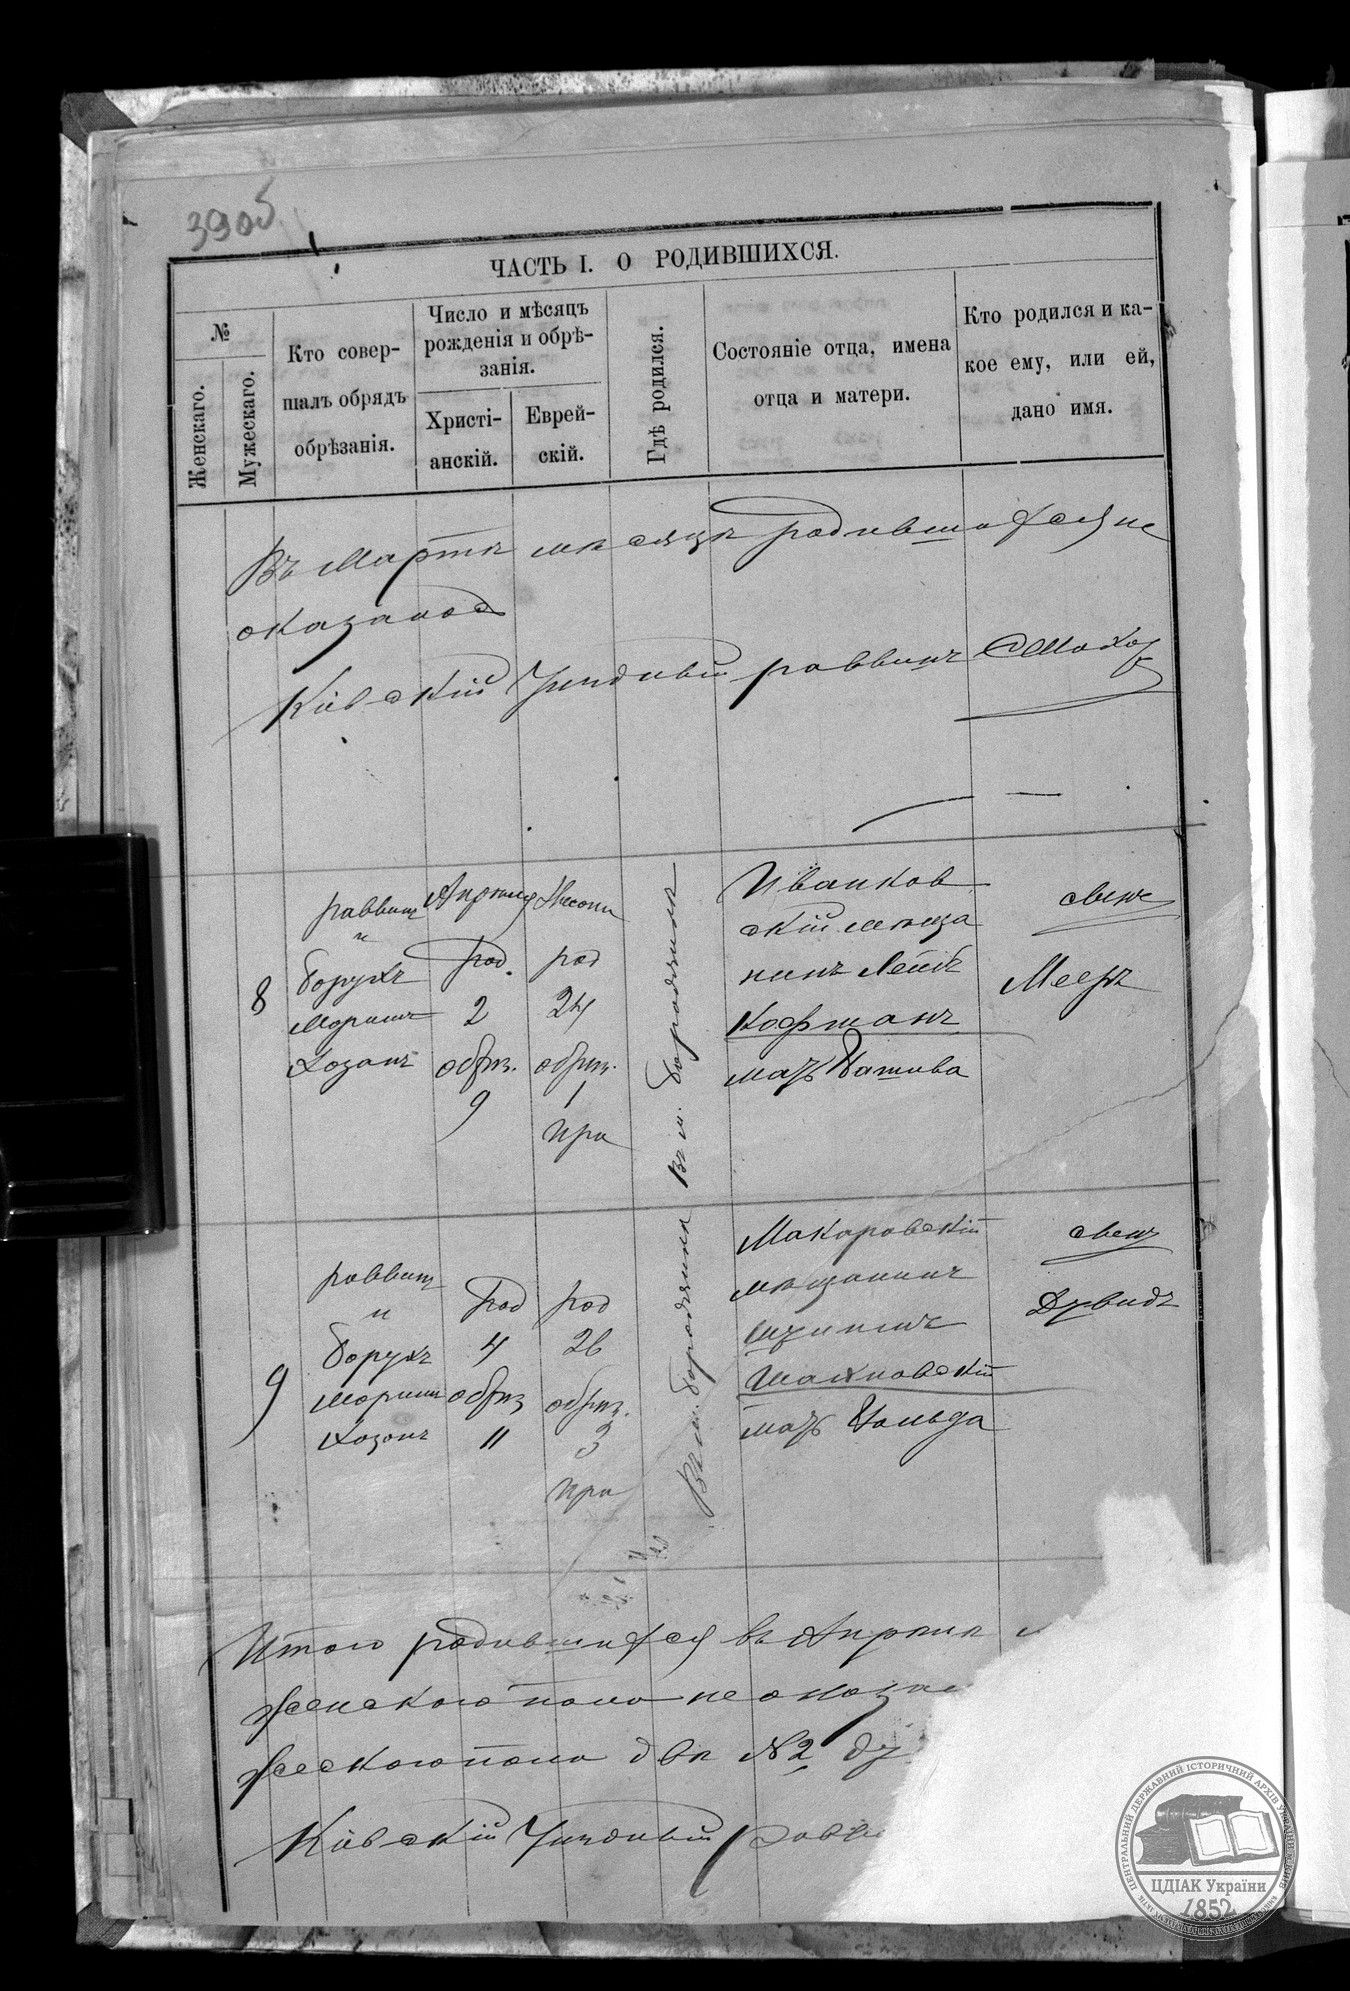 390б
ЧАСТЬ I. О РОДИВШИХСЯ.
№
Женскаго.
Мужескаго.
Кто совер-
шалъ обрядъ
обрѣзанія.
Число и мѣсяцъ
рожденія и обрѣ-
занія.
Христі-
анскій.
Еврей-
скій.
Гдѣ родился.
Состояніе отца, имена
отца и матери.
Кто родился и ка-
кое ему, или ей,
дано имя.
Въ Мартѣ мѣсяцѣ родившихся не
оказалось
Кіевскій Уѣздный раввинъ
8
раввинъ
и
Борухъ
Моришъ
Хозанъ
Апрѣля
род.
2
обрѣз.
9
Нисонъ
род
24
обрѣз.
1
Ира
Въ м. Бородянкѣ
Иванков
скій мѣща
нинъ Лейбъ
Кофманъ
мать Батшева
сынъ
Мееръ
9
раввинъ
и
Борухъ
Моришъ
Хозанъ
род
4
обрѣз
11
род
26
обрѣз.
3
Ира
Въ м. Бородянкѣ
Макаровскій
мѣщанинъ
Шахновскій
мать Гольда
сынъ
Дувидъ
Итого родившихся въ Апрѣлѣ м
женского пола не оказал
жеского пола два № 2 ду
Кіевскій Уѣздный равви
ЦЕНТРАЛЬНИЙ ДЕРЖАВНИЙ ІСТОРИЧНИЙ АРХІВ УКРАЇНИ, М. КИЇВ
ЦДІАК України
1852